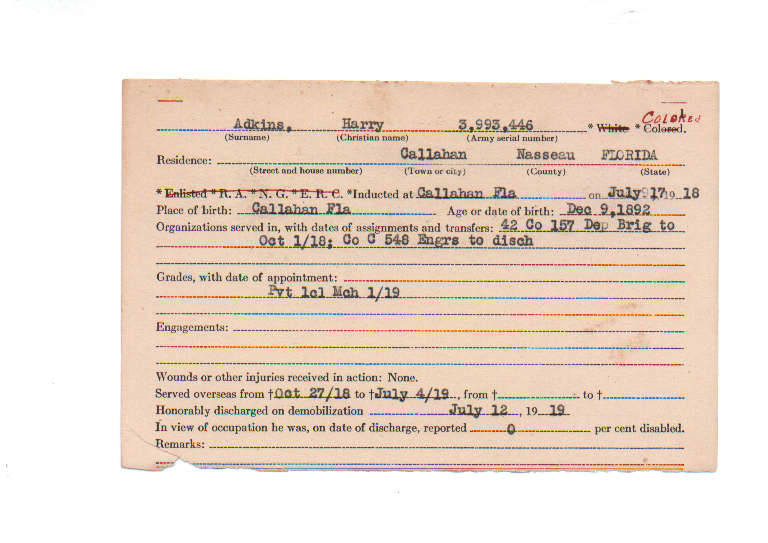 COLORED
Adkins, Harry 3,993,446 * White * Colored.
(Surname) (Christian name) (Army serial number)
Residence: Callahan Nasseau FLORIDA
(Street and house number) (Town or city) (County) (State)
* Enlisted * R. A. * N. G. * E. R. C. *Inducted at Callahan Fla on July 17 19 18
Place of birth: Callahan Fla Age or date of birth: Dec 9,1892
Organizations served in, with dates of assignments and transfers: 42 Co 157 Dep Brig to
Oct 1/18; Co C 548 Engrs to disch
Grades, with date of appointment:
Pvt 1cl Mch 1/19
Engagements:
Wounds or other injuries received in action: None.
Served overseas from †Oct 27/18 to †July 4/19, from † to †
Honorably discharged on demobilization July 12, 19 19
In view of occupation he was, on date of discharge, reported 0 per cent disabled.
Remarks: